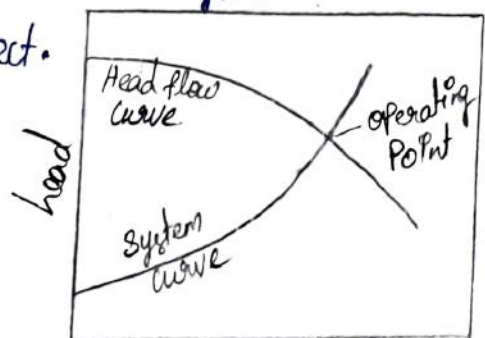 ect.
Head flow
curve
operating
Point
head
system
curve